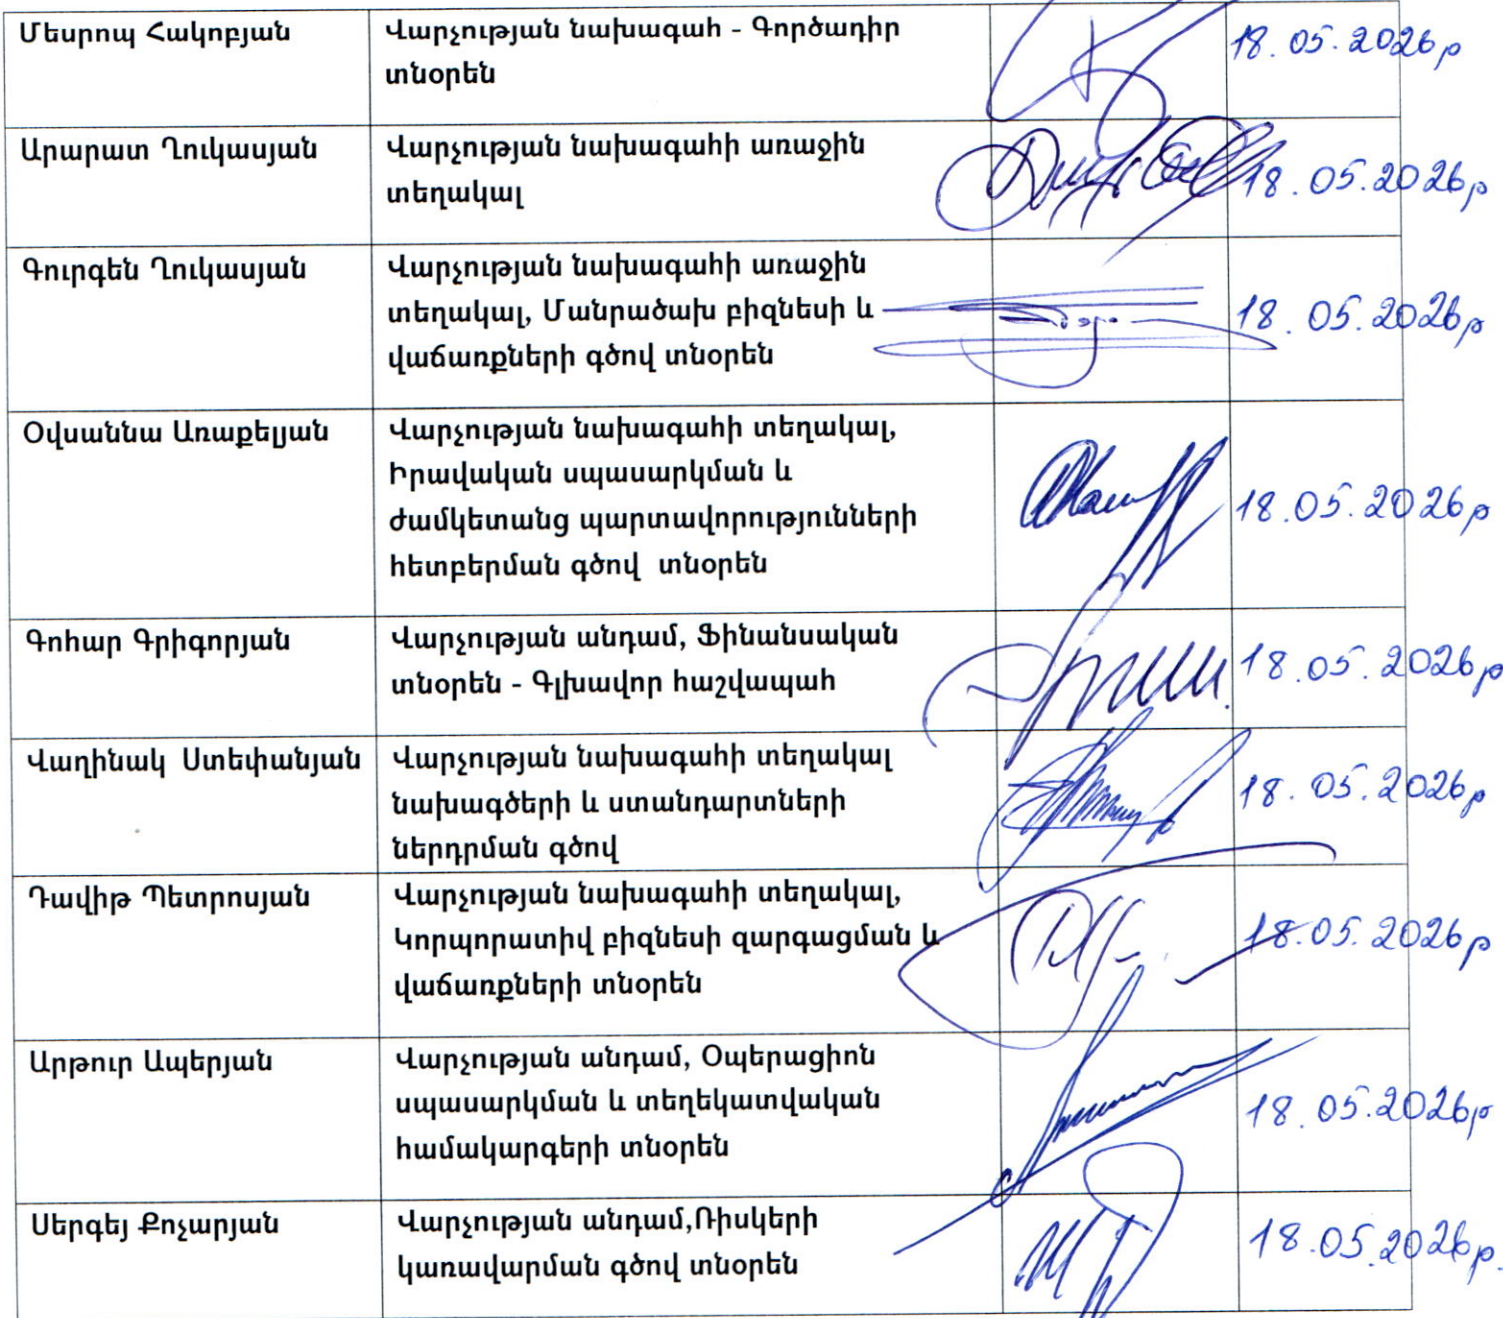 Մեսրոպ Հակոբյան
Վարչության նախագահ - Գործադիր
տնօրեն
18.05.2026թ
Արարատ Ղուկասյան
Վարչության նախագահի առաջին
տեղակալ
18.05.2026թ
Գուրգեն Ղուկասյան
Վարչության նախագահի առաջին
տեղակալ, Մանրածախ բիզնեսի և
վաճառքների գծով տնօրեն
18.05.2026թ
Օվսաննա Առաքելյան
Վարչության նախագահի տեղակալ,
Իրավական սպասարկման և
ժամկետանց պարտավորությունների
հետբերման գծով տնօրեն
18.05.2026թ
Գոհար Գրիգորյան
Վարչության անդամ, Ֆինանսական
տնօրեն - Գլխավոր հաշվապահ
18.05.2026թ
Վաղինակ Ստեփանյան
Վարչության նախագահի տեղակալ
նախագծերի և ստանդարտների
ներդրման գծով
18.05.2026թ
Դավիթ Պետրոսյան
Վարչության նախագահի տեղակալ,
Կորպորատիվ բիզնեսի զարգացման և
վաճառքների տնօրեն
18.05.2026թ
Արթուր Ապերյան
Վարչության անդամ, Օպերացիոն
սպասարկման և տեղեկատվական
համակարգերի տնօրեն
18.05.2026թ
Սերգեյ Քոչարյան
Վարչության անդամ,Ռիսկերի
կառավարման գծով տնօրեն
18.05.2026թ.